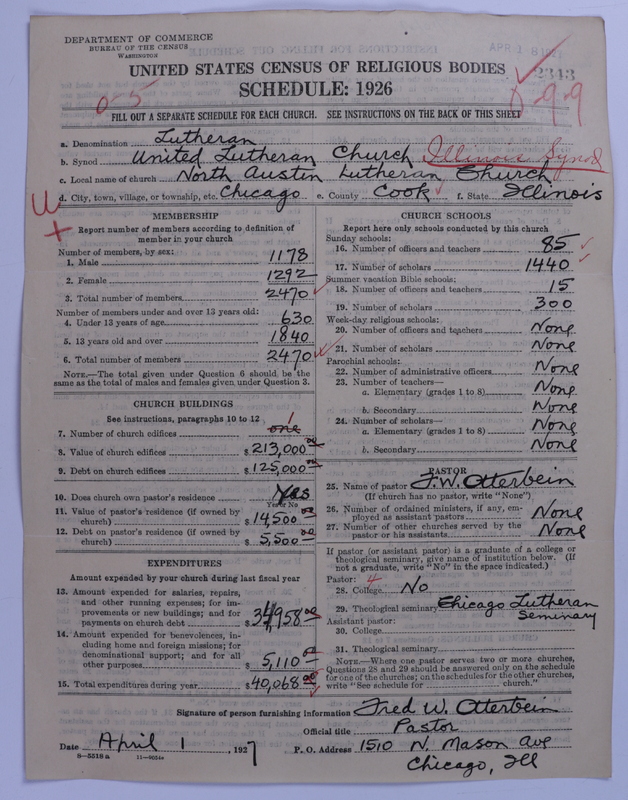 DEPARTMENT OF COMMERCE
BUREAU OF THE CENSUS
WASHINGTON
APR 8 1927
UNITED STATES CENSUS OF RELIGIOUS BODIES
2343
SCHEDULE: 1926
0-5
0-9-9
FILL OUT A SEPARATE SCHEDULE FOR EACH CHURCH. SEE INSTRUCTIONS ON THE BACK OF THIS SHEET
a. Denomination Lutheran
b. Synod United Lutheran Church Illinois Synod
c. Local name of church North Austin Lutheran Church
d. City, town, village, or township, etc. Chicago e. County Cook f. State Illinois
W
MEMBERSHIP
Report number of members according to definition of
member in your church
Number of members, by sex:
1. Male 1178
2. Female 1292
3. Total number of members 2470
Number of members under and over 13 years old:
4. Under 13 years of age 630
5. 13 years old and over 1840
6. Total number of members 2470
NOTE.—The total given under Question 6 should be the
same as the total of males and females given under Question 3.
CHURCH BUILDINGS
See instructions, paragraphs 10 to 12
7. Number of church edifices one 1
8. Value of church edifices $ 213,000 00
9. Debt on church edifices $ 125,000 00
10. Does church own pastor's residence Yes
Yes or No
11. Value of pastor's residence (if owned by
church) $ 14,500 00
12. Debt on pastor's residence (if owned by
church) $ 5,500 00
EXPENDITURES
Amount expended by your church during last fiscal year
13. Amount expended for salaries, repairs,
and other running expenses; for im-
provements or new buildings; and for
payments on church debt $ 34,958 00
14. Amount expended for benevolences, in-
cluding home and foreign missions; for
denominational support; and for all
other purposes $ 5,110
15. Total expenditures during year $ 40,068 00
CHURCH SCHOOLS
Report here only schools conducted by this church
Sunday schools:
16. Number of officers and teachers 85
17. Number of scholars 1440
Summer vacation Bible schools:
18. Number of officers and teachers 15
19. Number of scholars 300
Week-day religious schools:
20. Number of officers and teachers None
21. Number of scholars None
Parochial schools:
22. Number of administrative officers None
23. Number of teachers—
a. Elementary (grades 1 to 8) None
b. Secondary None
24. Number of scholars—
a. Elementary (grades 1 to 8) None
b. Secondary None
PASTOR
25. Name of pastor F.W. Otterbein
(If church has no pastor, write "None")
26. Number of ordained ministers, if any, em-
ployed as assistant pastors None
27. Number of other churches served by the
pastor or his assistants None
If pastor (or assistant pastor) is a graduate of a college or
theological seminary, give name of institution below. (If
not a graduate, write "No" in the space indicated.)
Pastor: 4
28. College No
29. Theological seminary Chicago Lutheran
Seminary
Assistant pastor:
30. College
31. Theological seminary
NOTE.—Where one pastor serves two or more churches,
Questions 28 and 29 should be answered only on the schedule
for one of the churches; on the schedules for the other churches,
write "See schedule for church."
Signature of person furnishing information Fred W. Otterbein
Official title Pastor
Date April 1, 1927 P. O. Address 1510 N. Mason Ave
8-5518a 11-9051a
Chicago, Ill